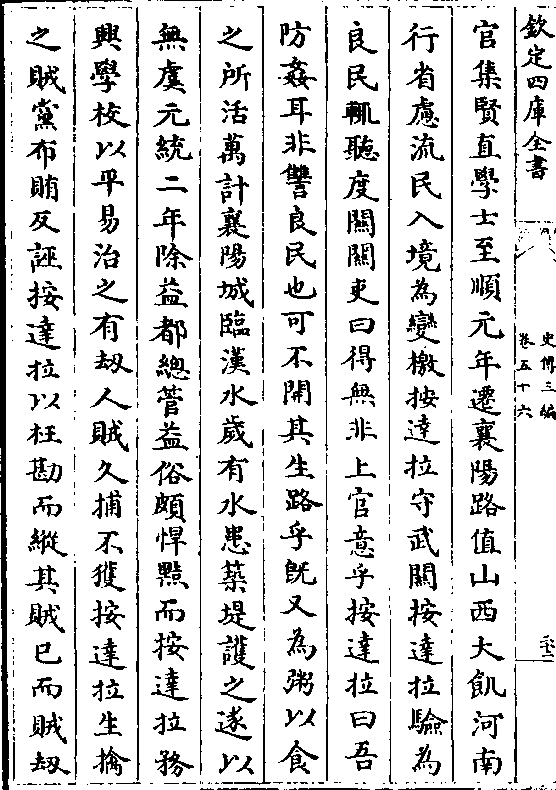 欽定四庫全書
史傳三編
卷五十六
官集賢直學士至順元年遷襄陽路值山西大飢河南
行省慮流民入境為變檄按達拉守武關按達拉驗為
良民輒聽度關關吏曰得無非上官意乎按達拉曰吾
防姦耳非讐良民也可不開其生路乎旣又為粥以食
之所活萬計襄陽城臨漢水歲有水患築堤護之遂以
無虞元統二年除益都總管益俗頗悍黠而按達拉務
興學校以平易治之有刼人賊久捕不獲按達拉生擒
之賊黨布賄反誣按達拉以枉勘而縱其賊已而賊刼